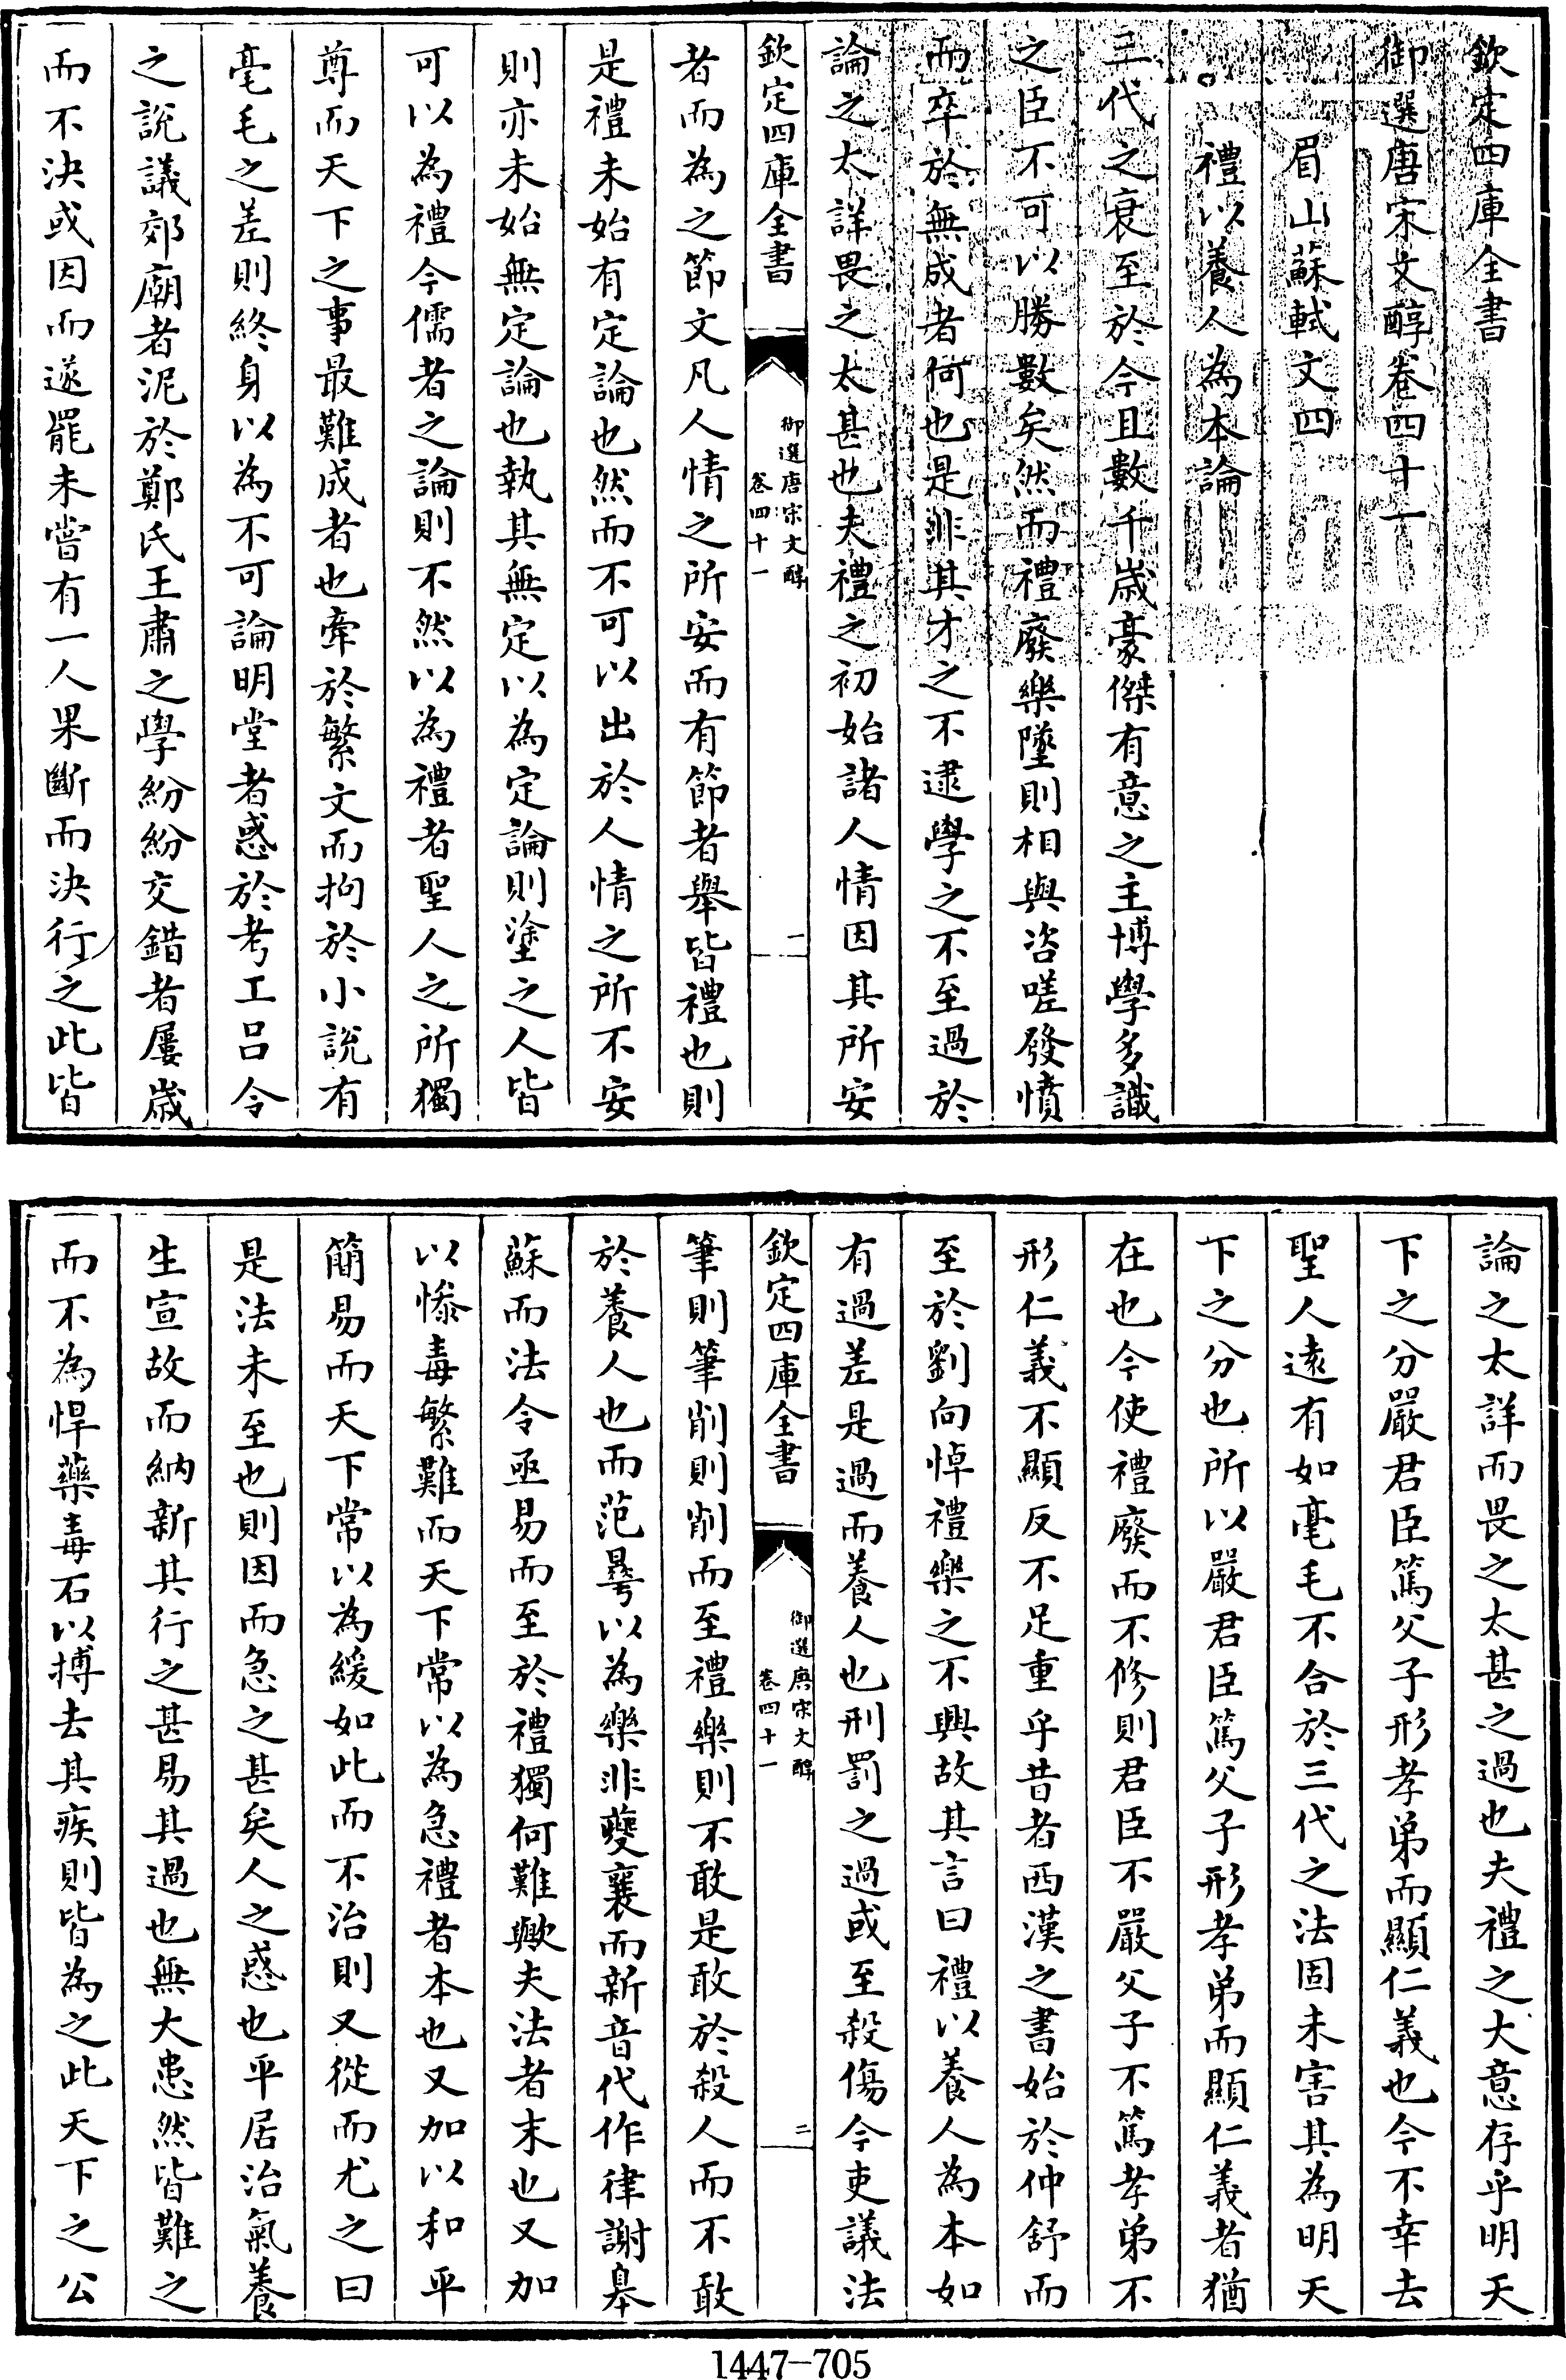 欽定四庫全書
御選唐宋文醇卷四十一
眉山蘇軾文四
禮以養人為本論
三代之衰至於今且數千歲豪傑有意之主博學多識
之臣不可以勝數矣然而禮廢樂墜則相與咨嗟發憤
而卒於無成者何也是非其才之不逮學之不至過於
論之太詳畏之太甚也夫禮之初始諸人情因其所安
欽定四庫全書
御選唐宋文醇
卷四十一
一
者而為之節文凡人情之所安而有節者舉皆禮也則
是禮未始有定論也然而不可以出於人情之所不安
則亦未始無定論也執其無定以為定論則塗之人皆
可以為禮今儒者之論則不然以為禮者聖人之所獨
尊而天下之事最難成者也牽於繁文而拘於小說有
毫毛之差則終身以為不可論明堂者惑於考工呂令
之說議郊廟者泥於鄭氏王肅之學紛紛交錯者屢歲
而不決或因而遂罷未嘗有一人果斷而決行之此皆
論之太詳而畏之太甚之過也夫禮之大意存乎明天
下之分嚴君臣篤父子形孝弟而顯仁義也今不幸去
聖人遠有如毫毛不合於三代之法固未害其為明天
下之分也所以嚴君臣篤父子形孝弟而顯仁義者猶
在也今使禮廢而不修則君臣不嚴父子不篤孝弟不
形仁義不顯反不足重乎昔者西漢之書始於仲舒而
至於劉向悼禮樂之不興故其言曰禮以養人為本如
有過差是過而養人也刑罰之過或至殺傷今吏議法
欽定四庫全書
御選唐宋文醇
卷四十一
二
筆則筆削則削而至禮樂則不敢是敢於殺人而不敢
於養人也而范曅以為樂非夔襄而新音代作律謝臯
蘇而法令亟易而至於禮獨何難歟夫法者末也又加
以慘毒繁難而天下常以為急禮者本也又加以和平
簡易而天下常以為緩如此而不治則又從而尤之曰
是法未至也則因而急之甚矣人之惑也平居治氣養
生宣故而納新其行之甚易其過也無大患然皆難之
而不為悍藥毒石以搏去其疾則皆為之此天下之公
1447-705